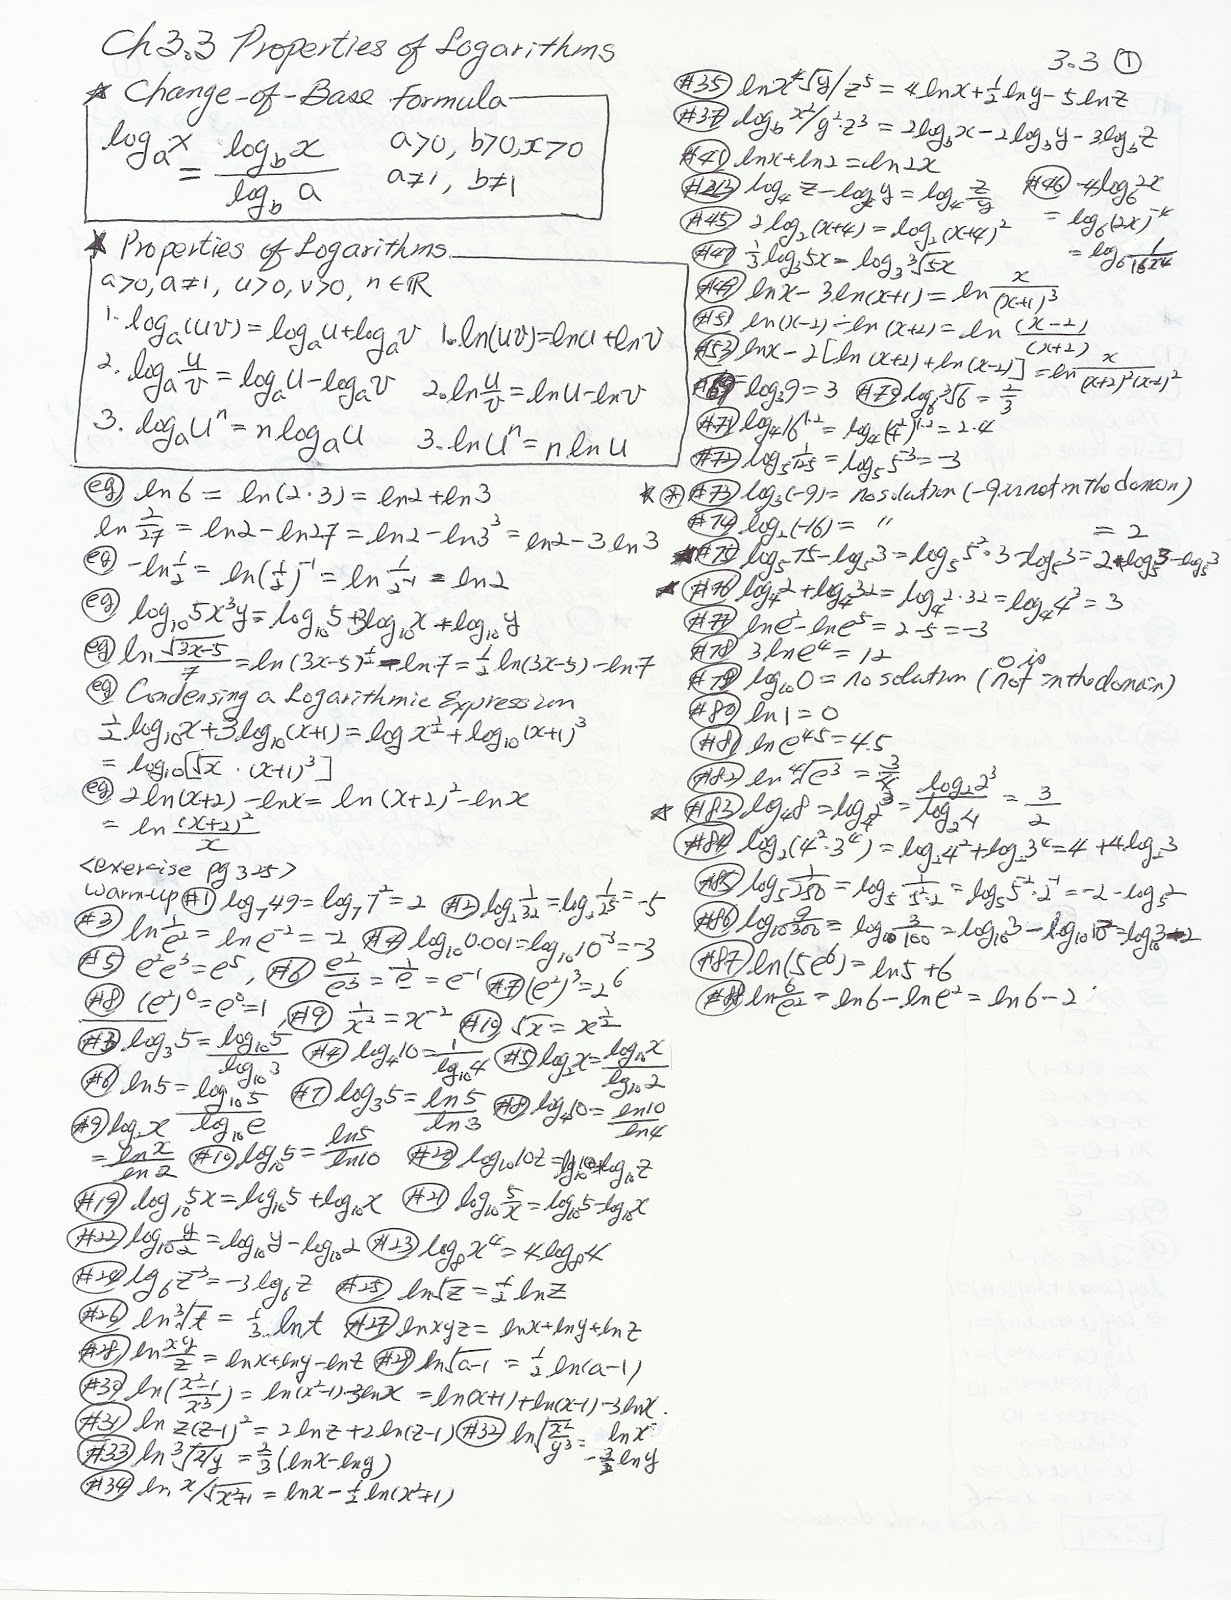 Ch 3.3 Properties of Logarithms
* Change-of-Base Formula
log_a x = log_b x / log_b a   a>0, b>0, x>0
a≠1, b≠1
* Properties of Logarithms
a>0, a≠1, u>0, v>0, n∈ℝ
1. log_a(uv) = log_a u + log_a v   1. ln(uv) = ln u + ln v
2. log_a u/v = log_a u - log_a v   2. ln u/v = ln u - ln v
3. log_a u^n = n log_a u   3. ln u^n = n ln u
eg) ln 6 = ln(2·3) = ln 2 + ln 3
ln 2/27 = ln 2 - ln 27 = ln 2 - ln 3^3 = ln 2 - 3 ln 3
eg) -ln 1/2 = ln(1/2)^-1 = ln 1/2^-1 = ln 2
eg) log_10 5x^3y = log_10 5 + 3log_10 x + log_10 y
eg) ln √(3x-5)/7 = ln(3x-5)^1/2 - ln 7 = 1/2 ln(3x-5) - ln 7
eg) Condensing a Logarithmic Expression
1/2 log_10 x + 3 log_10 (x+1) = log x^1/2 + log_10 (x+1)^3
= log_10 [√x · (x+1)^3]
eg) 2 ln(x+2) - ln x = ln(x+2)^2 - ln x
= ln (x+2)^2/x
<exercise pg 325>
Warm-up #1 log_7 49 = log_7 7^2 = 2   #2 log_2 1/32 = log_2 1/2^5 = -5
#3 ln 1/e^2 = ln e^-2 = -2   #4 log_10 0.001 = log_10 10^-3 = -3
#5 e^2e^3 = e^5, #6 e^2/e^3 = 1/e = e^-1   #7 (e^2)^3 = 2^6
#8 (e^2)^0 = e^0 = 1, #9 1/x^2 = x^-2   #10 √x = x^1/2
#3 log_3 5 = log_10 5 / log_10 3   #4 log_4 10 = 1/log_10 4   #5 log_2 x = log_10 x / log_10 2
#6 ln 5 = log_10 5 / log_10 e   #7 log_3 5 = ln 5 / ln 3   #8 log_4 10 = ln 10 / ln 4
#9 log_2 x
= ln x / ln 2   #10 log_10 5 = ln 5 / ln 10   #20 log_10 10z = log_10 10 + log_10 z
#19 log_10 5x = log_10 5 + log_10 x   #21 log_10 5/x = log_10 5 - log_10 x
#22 log_10 y/2 = log_10 y - log_10 2   #23 log_8 x^4 = 4 log_8 4
#24 log_6 z^-3 = -3 log_6 z   #25 ln √z = 1/2 ln z
#26 ln ∛t = 1/3 ln t   #27 ln xyz = ln x + ln y + ln z
#28 ln xy/z = ln x + ln y - ln z   #29 ln √(a-1) = 1/2 ln(a-1)
#30 ln(x^2-1/x^3) = ln(x^2-1) - 3 ln x = ln(x+1) + ln(x-1) - 3 ln x.
#31 ln z(z-1)^2 = 2 ln z + 2 ln(z-1)   #32 ln √(x^2/y^3) = ln x
- 3/2 ln y
#33 ln ∛ /y = 2/3 (ln x - ln y)
#34 ln x/√(x^2+1) = ln x - 1/2 ln(x^2+1)
3.3 ①
#35 ln x^4 √y/z^5 = 4 ln x + 1/2 ln y - 5 ln z
#37 log_b x^2/y^2·z^3 = 2 log_b x - 2 log_b y - 3 log_b z
#41 ln x + ln 2 = ln 2x
log_4 z - log_4 y = log_4 z/y   #46 -4 log_6 2x
#45 2 log_2 (x+4) = log_2 (x+4)^2   = log_6 (2x)^-4
#47 1/3 log_3 5x = log_3 ∛5x   = log_6 1/16x^4
#49 ln x - 3 ln(x+1) = ln x/(x+1)^3
#51 ln(x-2) - ln(x+2) = ln (x-2)/(x+2)
#53 ln x - 2[ln(x+2) + ln(x-2)] = ln x/(x+2)^2(x-2)^2
#69 log_3 9 = 3   log_6 ∛6 = 1/3
#71 log_4 16^1.2 = log_4 (4^2)^1.2 = 2.4
#72 log_5 1/125 = log_5 5^-3 = -3
* (*) #73 log_3 (-9) = no solution (-9 is not in the domain)
#74 log_2 (-16) = "   = 2
* #75 log_5 75 - log_5 3 = log_5 5^2·3 - log_5 3 = 2 + log_5 3 - log_5 3
* #76 log_4 2 + log_4 32 = log_4 2·32 = log_4 4^3 = 3
#77 ln e^2 - ln e^5 = 2-5 = -3
#78 3 ln e^4 = 12
#79 log_10 0 = no solution (0 is not in the domain)
#80 ln 1 = 0
#81 ln e^4.5 = 4.5
#82 ln ∜e^3 = 3/4
* #83 log_4 8 = log_4 2^3 = log_2 2^3 / log_2 4 = 3/2
#84 log_2 (4^2·3^4) = log_2 4^2 + log_2 3^4 = 4 + 4 log_2 3
#85 log_5 1/250 = log_5 1/5^2·2 = log_5 5^-2·2^-1 = -2 - log_5 2
#86 log_10 9/300 = log_10 3/100 = log_10 3 - log_10 10^2 = log_10 3 - 2
#87 ln(5e^6) = ln 5 + 6
#88 ln 6/e^2 = ln 6 - ln e^2 = ln 6 - 2